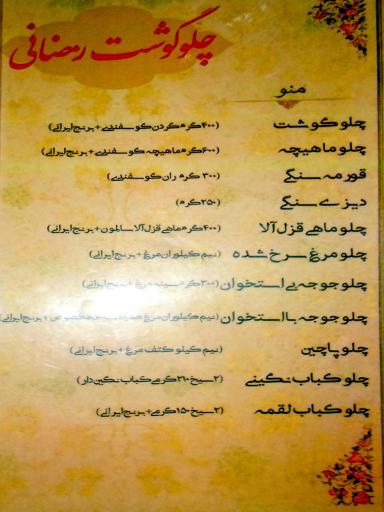 چلوگوشت رمضانی
منو
چلوگوشت (۴۰۰گرم گردن گوسفندی+برنج ایرانی)
چلوماهیچه (۶۰۰گرم ماهیچه گوسفندی+برنج ایرانی)
قورمه سنگی (۳۰۰ گرم ران گوسفندی)
دیزی سنگی (۲۵۰گرم)
چلوماهی قزل آلا (۴۰۰گرم ماهی قزل آلا سالمون+برنج ایرانی)
چلومرغ سرخ شده (نیم کیلوران مرغ+برنج ایرانی)
چلوجوجه بی استخوان (۳۰۰گرم سینه مرغ+برنج ایرانی)
چلوجوجه بااستخوان (نیم کیلوران مرغ مخصوص+برنج ایرانی)
چلوپاچین (نیم کیلو کتف مرغ+برنج ایرانی)
چلوکباب نگینی (۲سیخ ۲۱۰گرمی کباب نگین دار)
چلوکباب لقمه (۲سیخ ۱۵۰گرمی+برنج ایرانی)